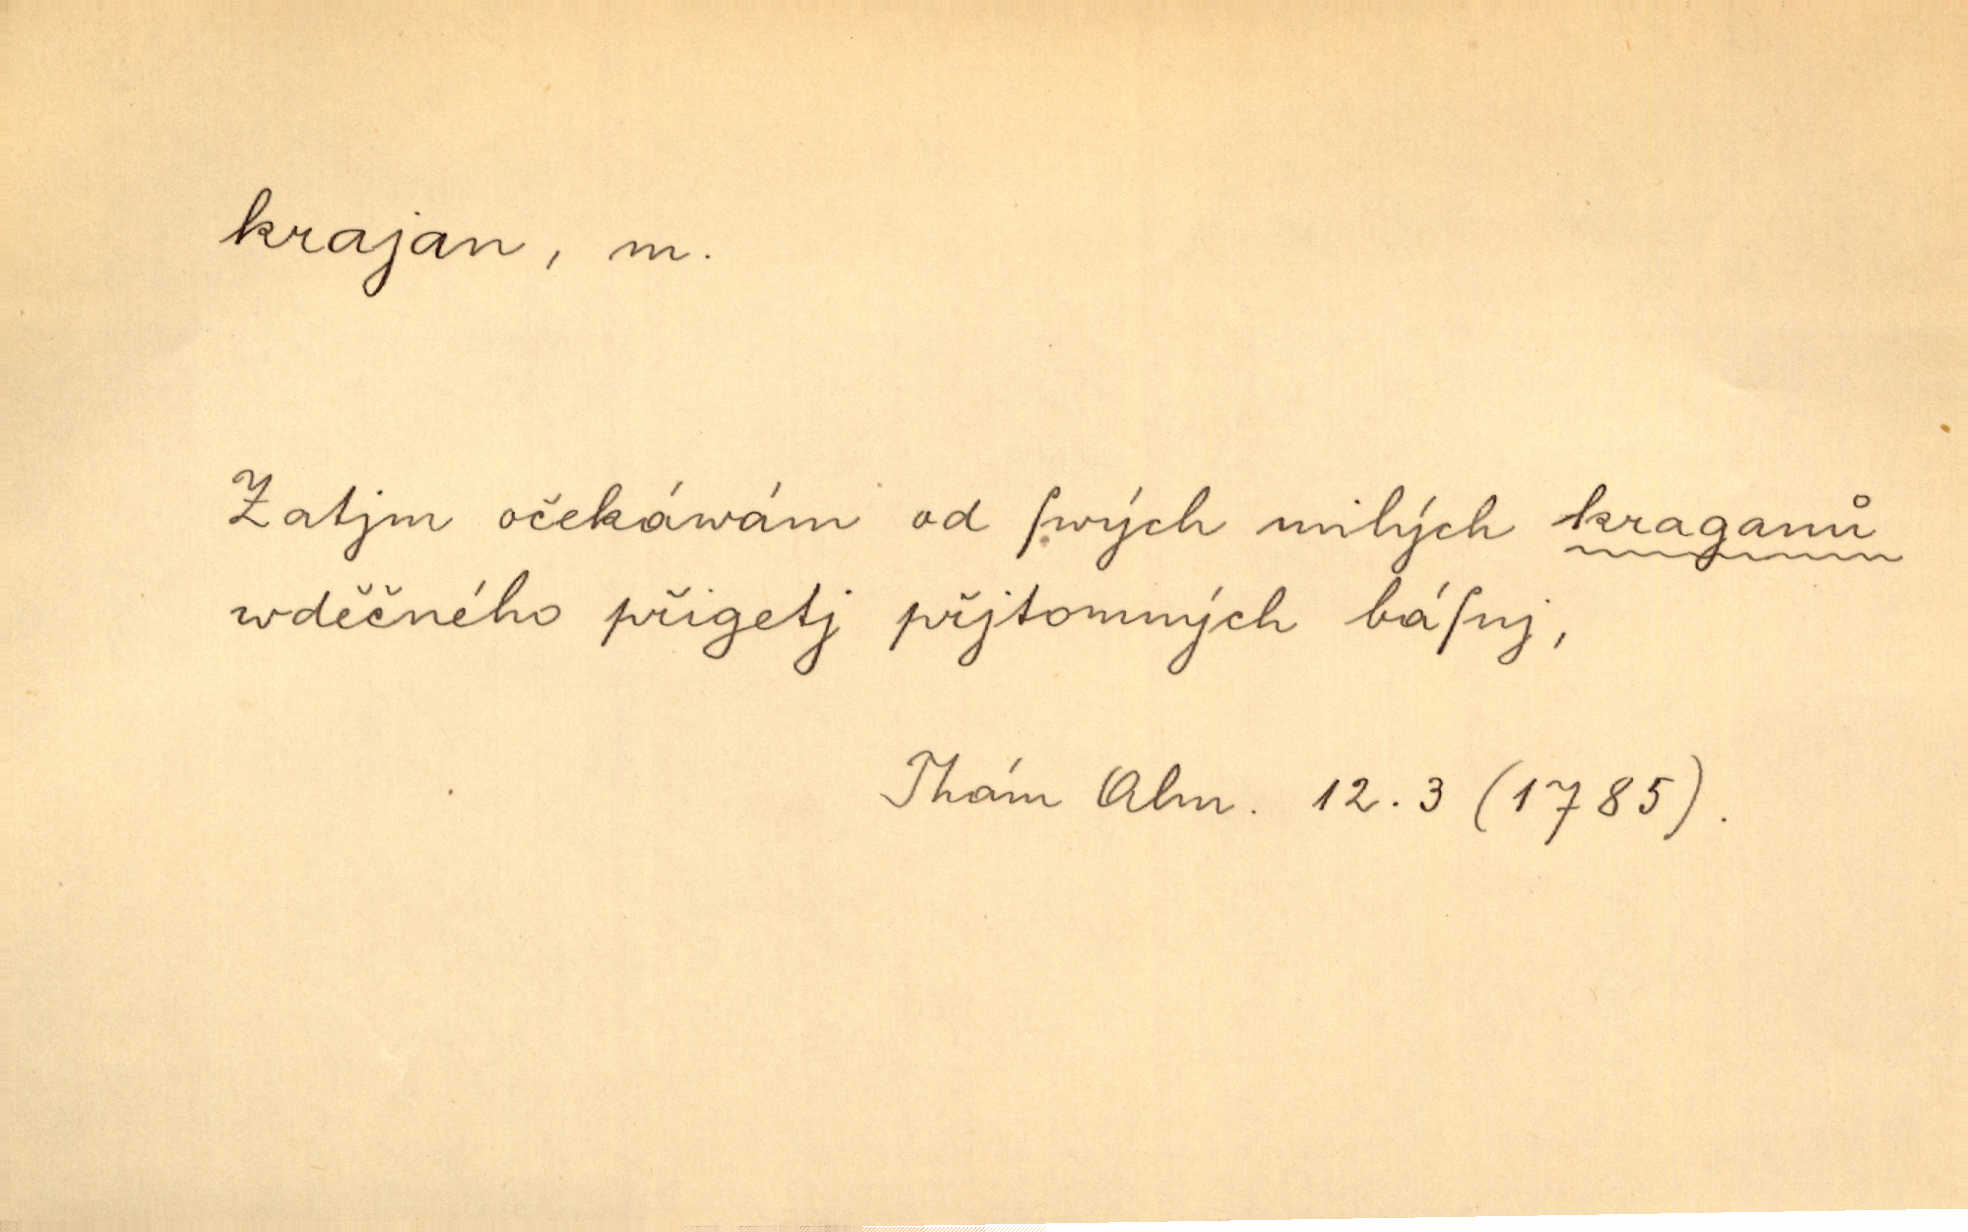 krajan, m.
Zatjm očekáwám od ſwých milých kraganů
wděčného přigetj přjtomných báſnj,
Thám Alm. 12.3 (1785).